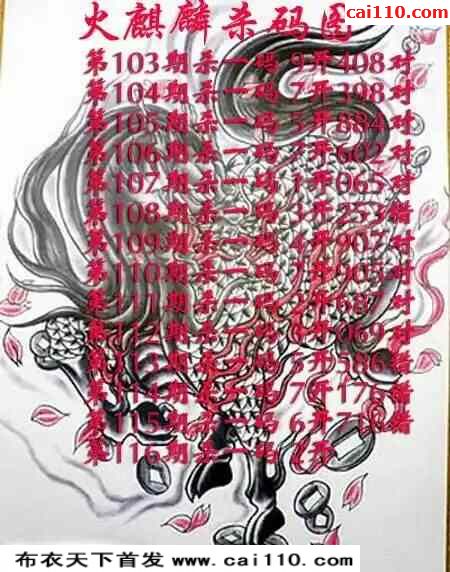 cai110.com
火麒麟杀码图
第103期杀一码 9开408对
第104期杀一码 7开398对
第105期杀一码 5开884对
第106期杀一码 开602对
第107期杀一码 1开065对
第108期杀一码 3开253错
第109期杀一码 4开907对
第110期杀一码 开905对
第111期杀一码 开687对
第112期杀一码 开069对
第113期杀一码 5开586错
第114期杀一码 7开176错
第115期杀一码 6开 错
第116期杀一码 开
布衣天下首发 www.cai110.com